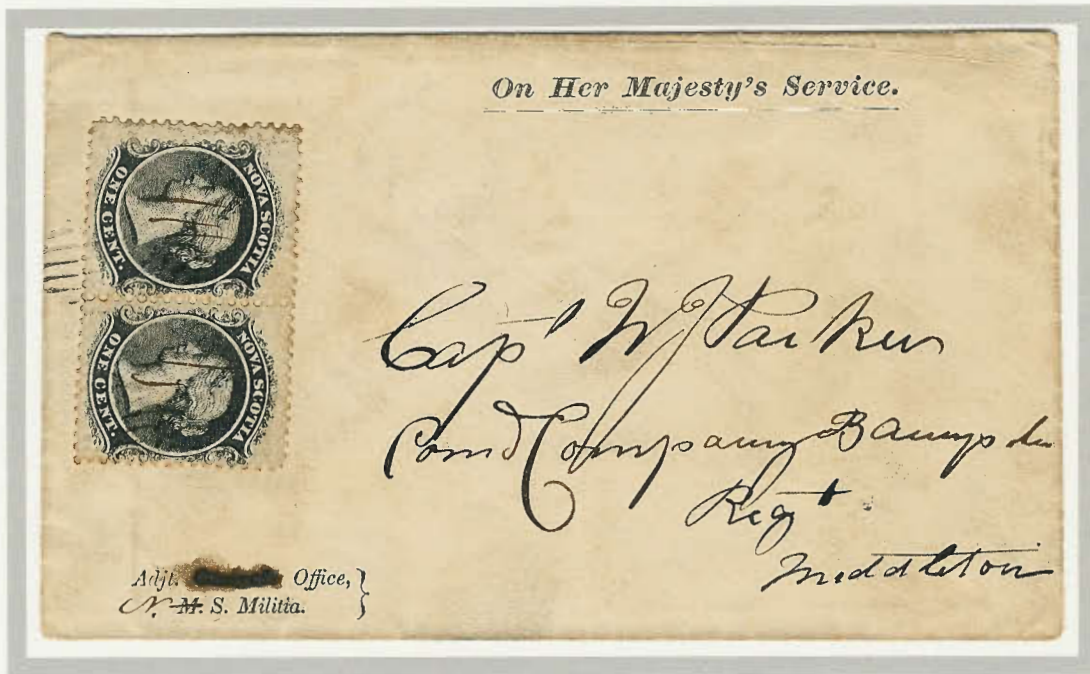 On Her Majesty's Service.
NOVA SCOTIA
ONE CENT.
NOVA SCOTIA
ONE CENT.
Capt W J Parker
Comd Company
Regt
Middleton
Adjt. Office,
N. M. S. Militia.